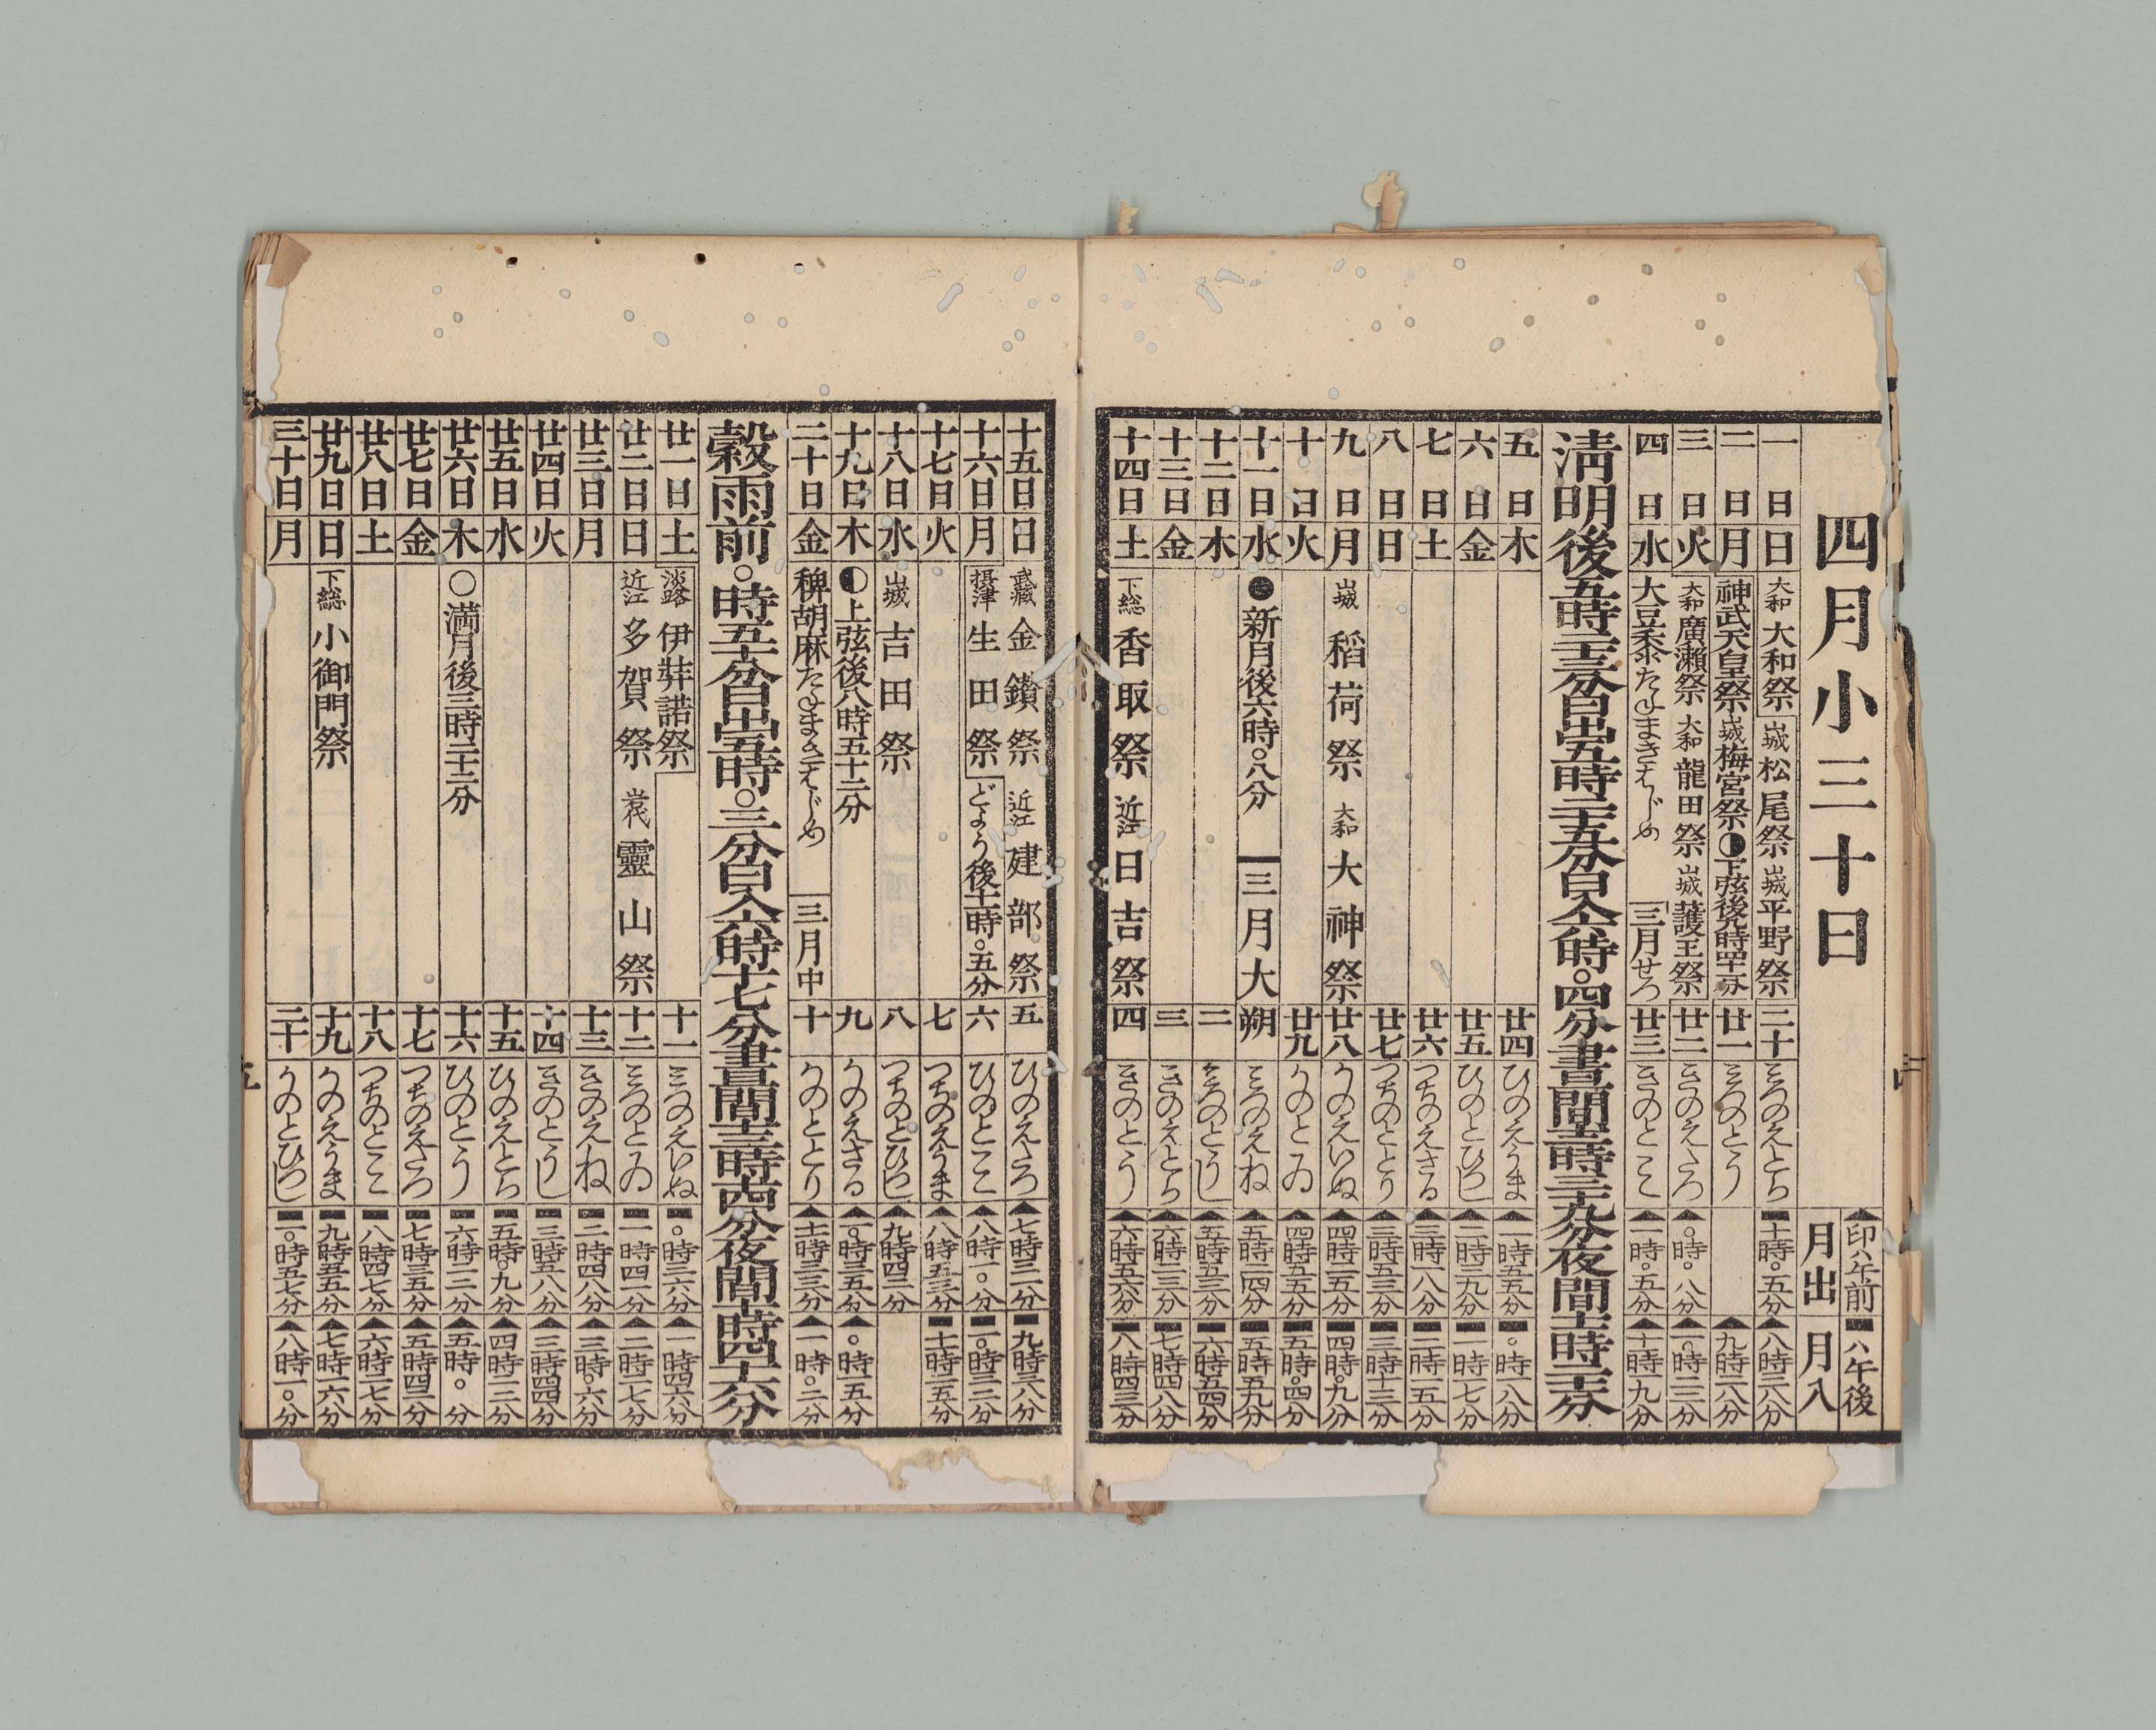 四月小三十日
▲印ハ午前 ▬ハ午後
月出 月入
一日 日 大和 大和祭 山城 松尾祭 山城 平野祭 二十 みつのえとら ▬十一時〇五分 ▲八時二八分
二日 月 神武天皇祭 山城 梅宮祭 ◑下弦後九時四十二分 廿一 みつのとう ▲九時二八分
三日 火 大和 廣瀬祭 大和 龍田祭 山城 護王祭 廿二 きのえたつ ▲〇時〇八分 ▲一〇時二二分
四日 水 大豆黍たねまきはじめ 三月せつ 廿三 きのとミ ▲一時〇五分 ▲十一時一九分
淸明後五時二十三分日出五時二十五分日入六時〇四分晝間十二時三十九分夜間十一時二十一分
五日 木 廿四 ひのえうま ▲一時五五分 ▬〇時一八分
六日 金 廿五 ひのとひつし ▲二時三九分 ▬一時一七分
七日 土 廿六 つちのえさる ▲三時一八分 ▬二時一五分
八日 日 廿七 つちのととり ▲三時五三分 ▬三時十三分
九日 月 山城 稲荷祭 大和 大神祭 廿八 かのえいぬ ▲四時二五分 ▬四時〇九分
十日 火 廿九 かのとゐ ▲四時五五分 ▬五時〇四分
十一日 水 ●新月後六時〇八分 三月大 朔 みつのえね ▲五時二四分 ▬五時五九分
十二日 木 二 みつのとうし ▲五時五三分 ▬六時五四分
十三日 金 三 きのえとら ▲六時二三分 ▬七時四八分
十四日 土 下総 香取祭 近江 日吉祭 四 きのとう ▲六時五六分 ▬八時四三分
十五日 日 武藏 金鑚祭 近江 建部祭 五 ひのえたつ ▲七時三一分 ▬九時三八分
十六日 月 摂津 生田祭 どよう後十一時〇五分 六 ひのとミ ▲八時一〇分 ▬一〇時三二分
十七日 火 七 つちのえうま ▲八時五三分 ▬十一時二五分
十八日 水 山城 吉田祭 八 つちのとひつし ▲九時四二分
十九日 木 ◐上弦後八時五十二分 九 かのえさる ▲一〇時三五分 ▲〇時一五分
二十日 金 稗胡麻たねまきはじめ 三月中 十 かのととり ▲十一時三三分 ▲一時〇二分
穀雨前〇時五十六分日出五時〇三分日入六時十七分晝間十三時十四分夜間十時四十六分
廿一日 土 淡路 伊弉諾祭 十一 みつのえいぬ ▬〇時三六分 ▲一時四六分
廿二日 日 近江 多賀祭 岩代 靈山祭 十二 みつのとゐ ▬一時四一分 ▲二時二七分
廿三日 月 十三 きのえね ▬二時四八分 ▲三時〇六分
廿四日 火 十四 きのとうし ▬三時五八分 ▲三時四四分
廿五日 水 十五 ひのえとら ▬五時〇九分 ▲四時二二分
廿六日 木 〇満月後三時二十二分 十六 ひのとう ▬六時二二分 ▲五時〇分
廿七日 金 十七 つちのえたつ ▬七時三五分 ▲五時四二分
廿八日 土 十八 つちのとミ ▬八時四七分 ▲六時二七分
廿九日 日 下総 小御門祭 十九 かのえうま ▬九時五五分 ▲七時一六分
三十日 月 二十 かのとひつし ▬一〇時五七分 ▲八時一〇分
四
五